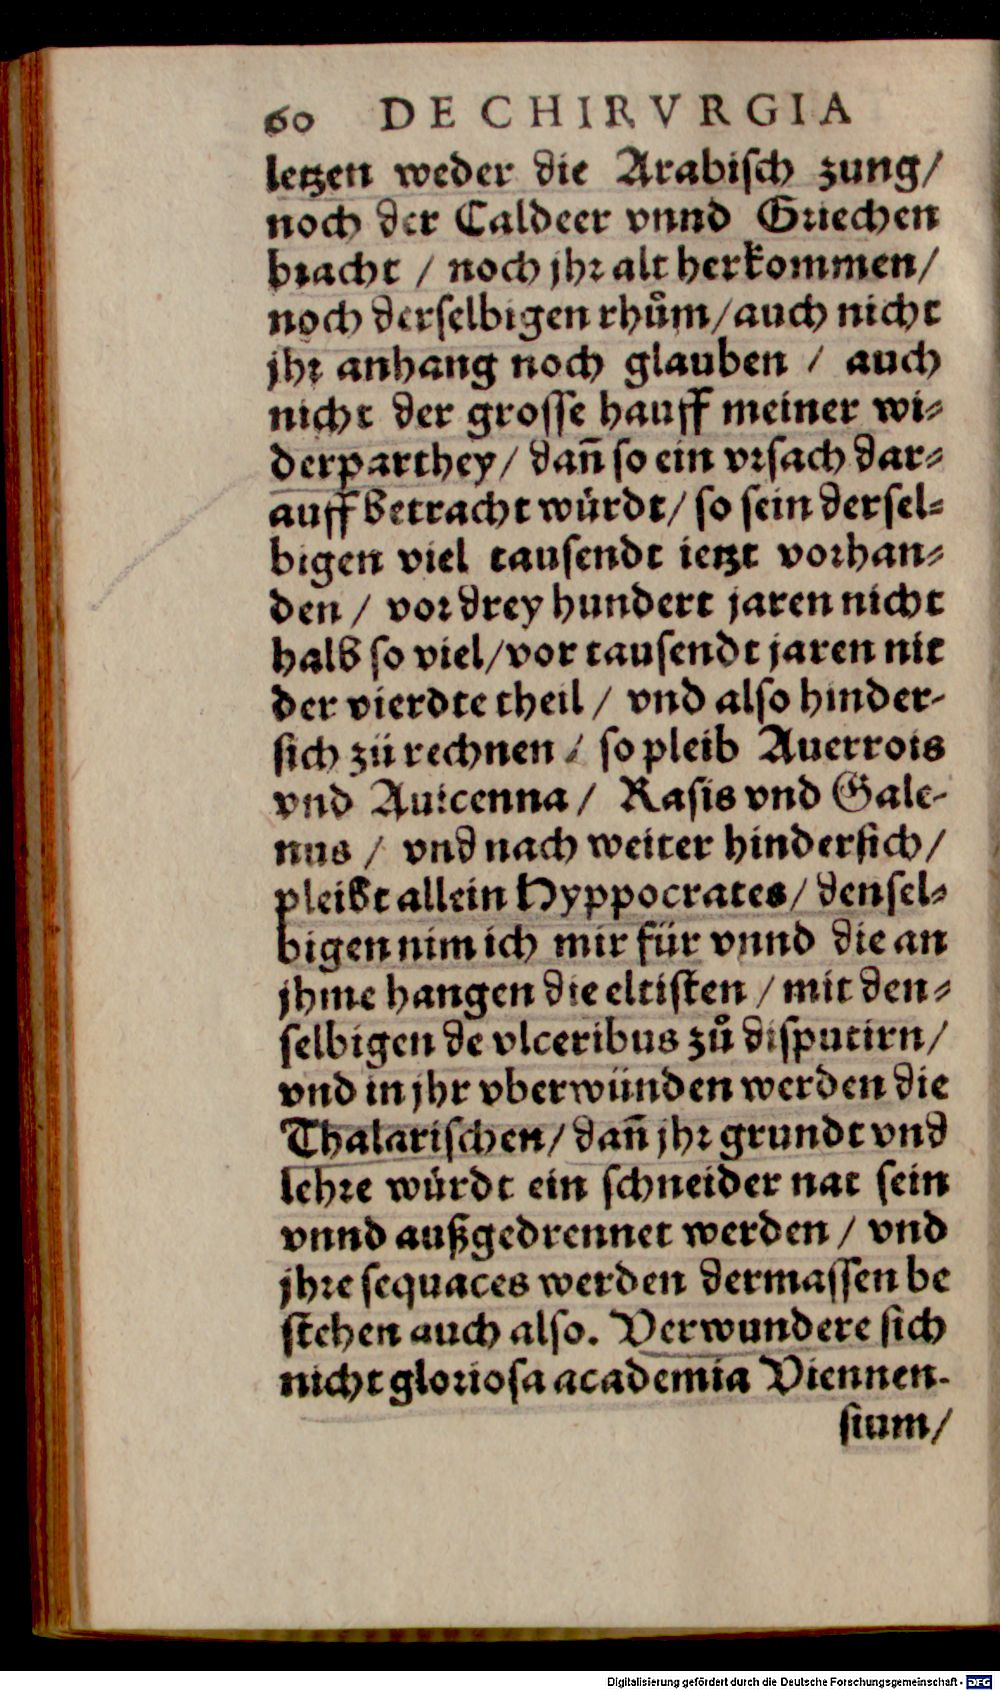 60 DE CHIRVRGIA
letzen weder die Arabisch zung/
noch der Caldeer vnnd Griechen
bracht / noch jhr alt herkommen/
noch derselbigen rhům/auch nicht
jhr anhang noch glauben / auch
nicht der grosse hauff meiner wi⸗
derparthey/ dañ so ein vrsach dar⸗
auff betracht würdt/ so sein dersel⸗
bigen viel tausendt ietzt vorhan⸗
den / vor drey hundert jaren nicht
halb so viel/vor tausendt jaren nit
der vierdte theil / vnd also hinder-
sich zü rechnen / so pleib Auerrois
vnd Auicenna/ Rasis vnd Gale-
nus / vnd nach weiter hindersich/
pleibt allein Hyppocrates/ densel⸗
bigen nim ich mir für vnnd die an
jhme hangen die eltisten / mit den⸗
selbigen de vlceribus zů disputirn/
vnd in jhr vberwünden werden die
Thalarischen/ dañ jhr grundt vnd
lehre würdt ein schneider nat sein
vnnd außgedrennet werden / vnd
jhre sequaces werden dermassen be
stehen auch also. Verwundere sich
nicht gloriosa academia Viennen-
sium/
Digitalisierung gefördert durch die Deutsche Forschungsgemeinschaft - DFG